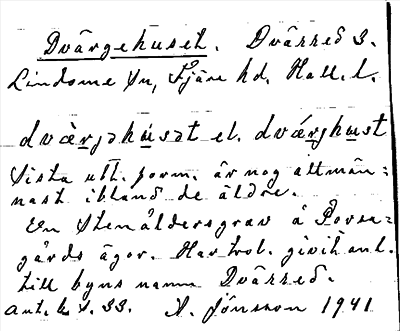 Dvärgehuset. Dvärred 3.
Lindome sn, Fjäre hd. Hall. l.
dvæ̀rjəhʉsət el. dvǽrjhʉst
Sista utt. form. är nog allmän=
nast ibland de äldre.
En Stenåldersgrav å Porsa=
gårds ägor. Har trol. givit anl.
till byns namn Dvärred.
Ant. b. s. 33. A. Jönsson 1941